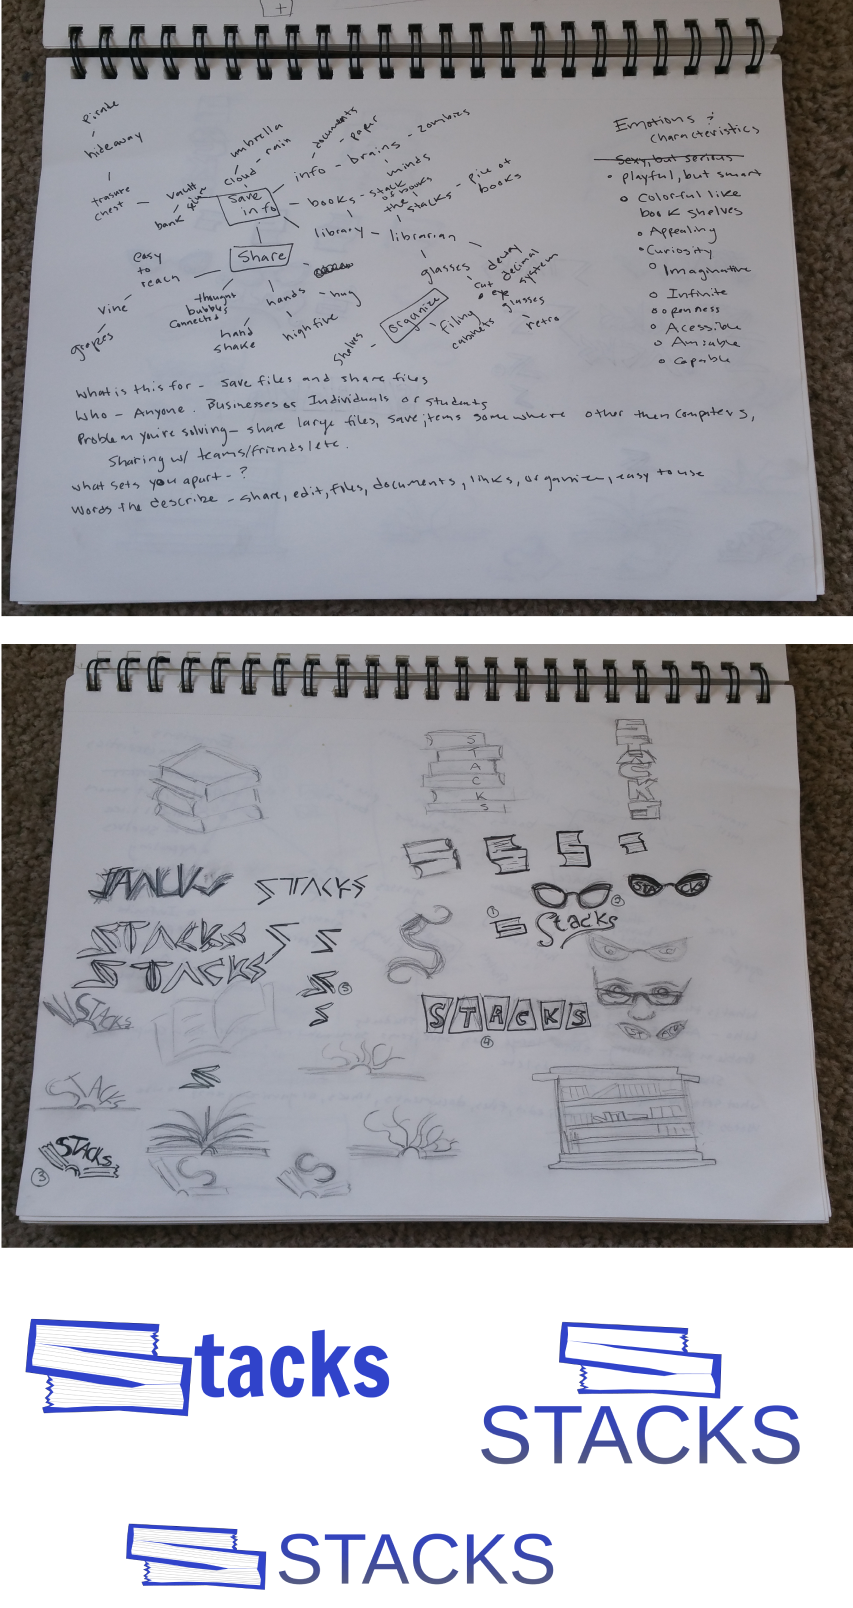 pirate
hideaway
trasure
chest
vault
bank
umbrella
cloud - rain
documents
- paper
info - brains - zombies
minds
save
info
books - stack
of books
the
stacks - pile of
books
library - librarian
Share
easy
to
reach
vine
grapes
thought
bubbles
connected
hands
hug
high five
hand
shake
glasses
dewey
decimal
system
cat
eye
glasses
retro
organize
shelves
filing
cabinets
Emotions ?
characteristics
Sexy, but serious
playful, but smart
Colorful like
book shelves
Appealing
Curiosity
Imaginative
Infinite
openness
Acessible
Amiable
Capable
what is this for - save files and share files
Who - Anyone. Businesses or Individuals or students
Problem you're solving - share large files, save items somewhere other then computers,
Sharing w/ teams/friends/etc.
what sets you apart - ?
Words the describe - share, edit, files, documents, links, organize, easy to use
S
T
A
C
K
S
STACKS
STACKS
STACKS
STACKS
S
S
STACKS
Stacks
1
2
5
STACKS
4
STACKS
STACKS
STACKS
3
S
S
Stacks
STACKS
STACKS